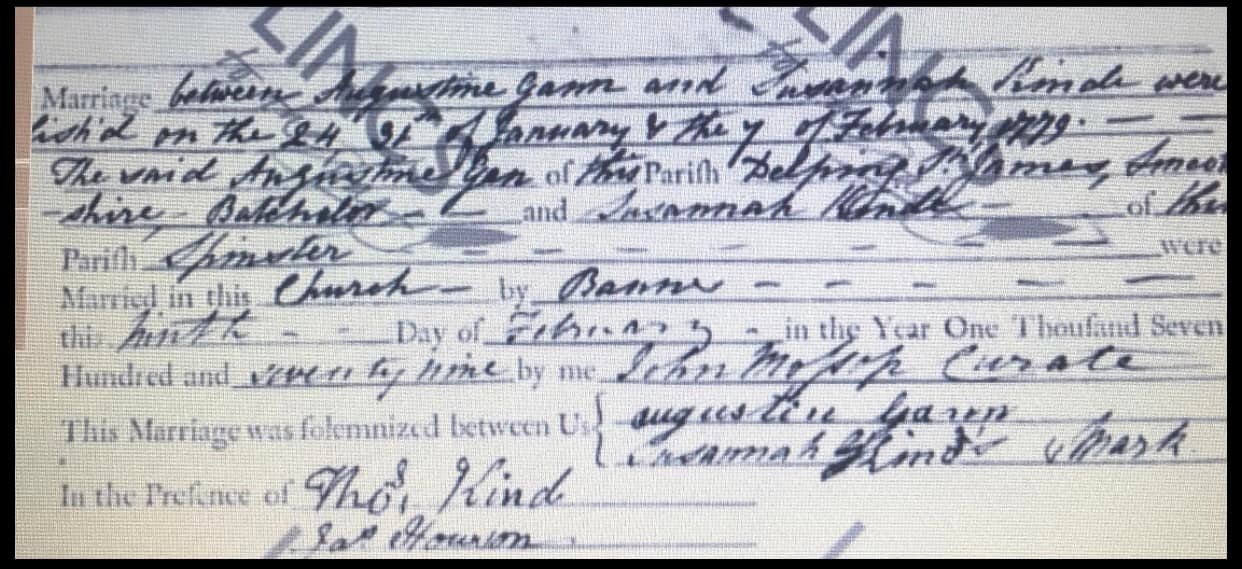 Marriage between Augustine Gann and Susannah Kinde were
lish'd on the 24 31st of January & the 7 of February 1779.
The said Augustine Gan of this Parish Delping St James,
-shire Batchelor and Susannah Kinde of this
Parish Spinster were
Married in this Church by Banns
this ninth Day of February in the Year One Thousand Seven
Hundred and seventy nine by me John Mossop Curate
This Marriage was solemnized between Us { augustine gann
Susannah Kinds Mark
In the Presence of Thos. Kind
Jas Hourson